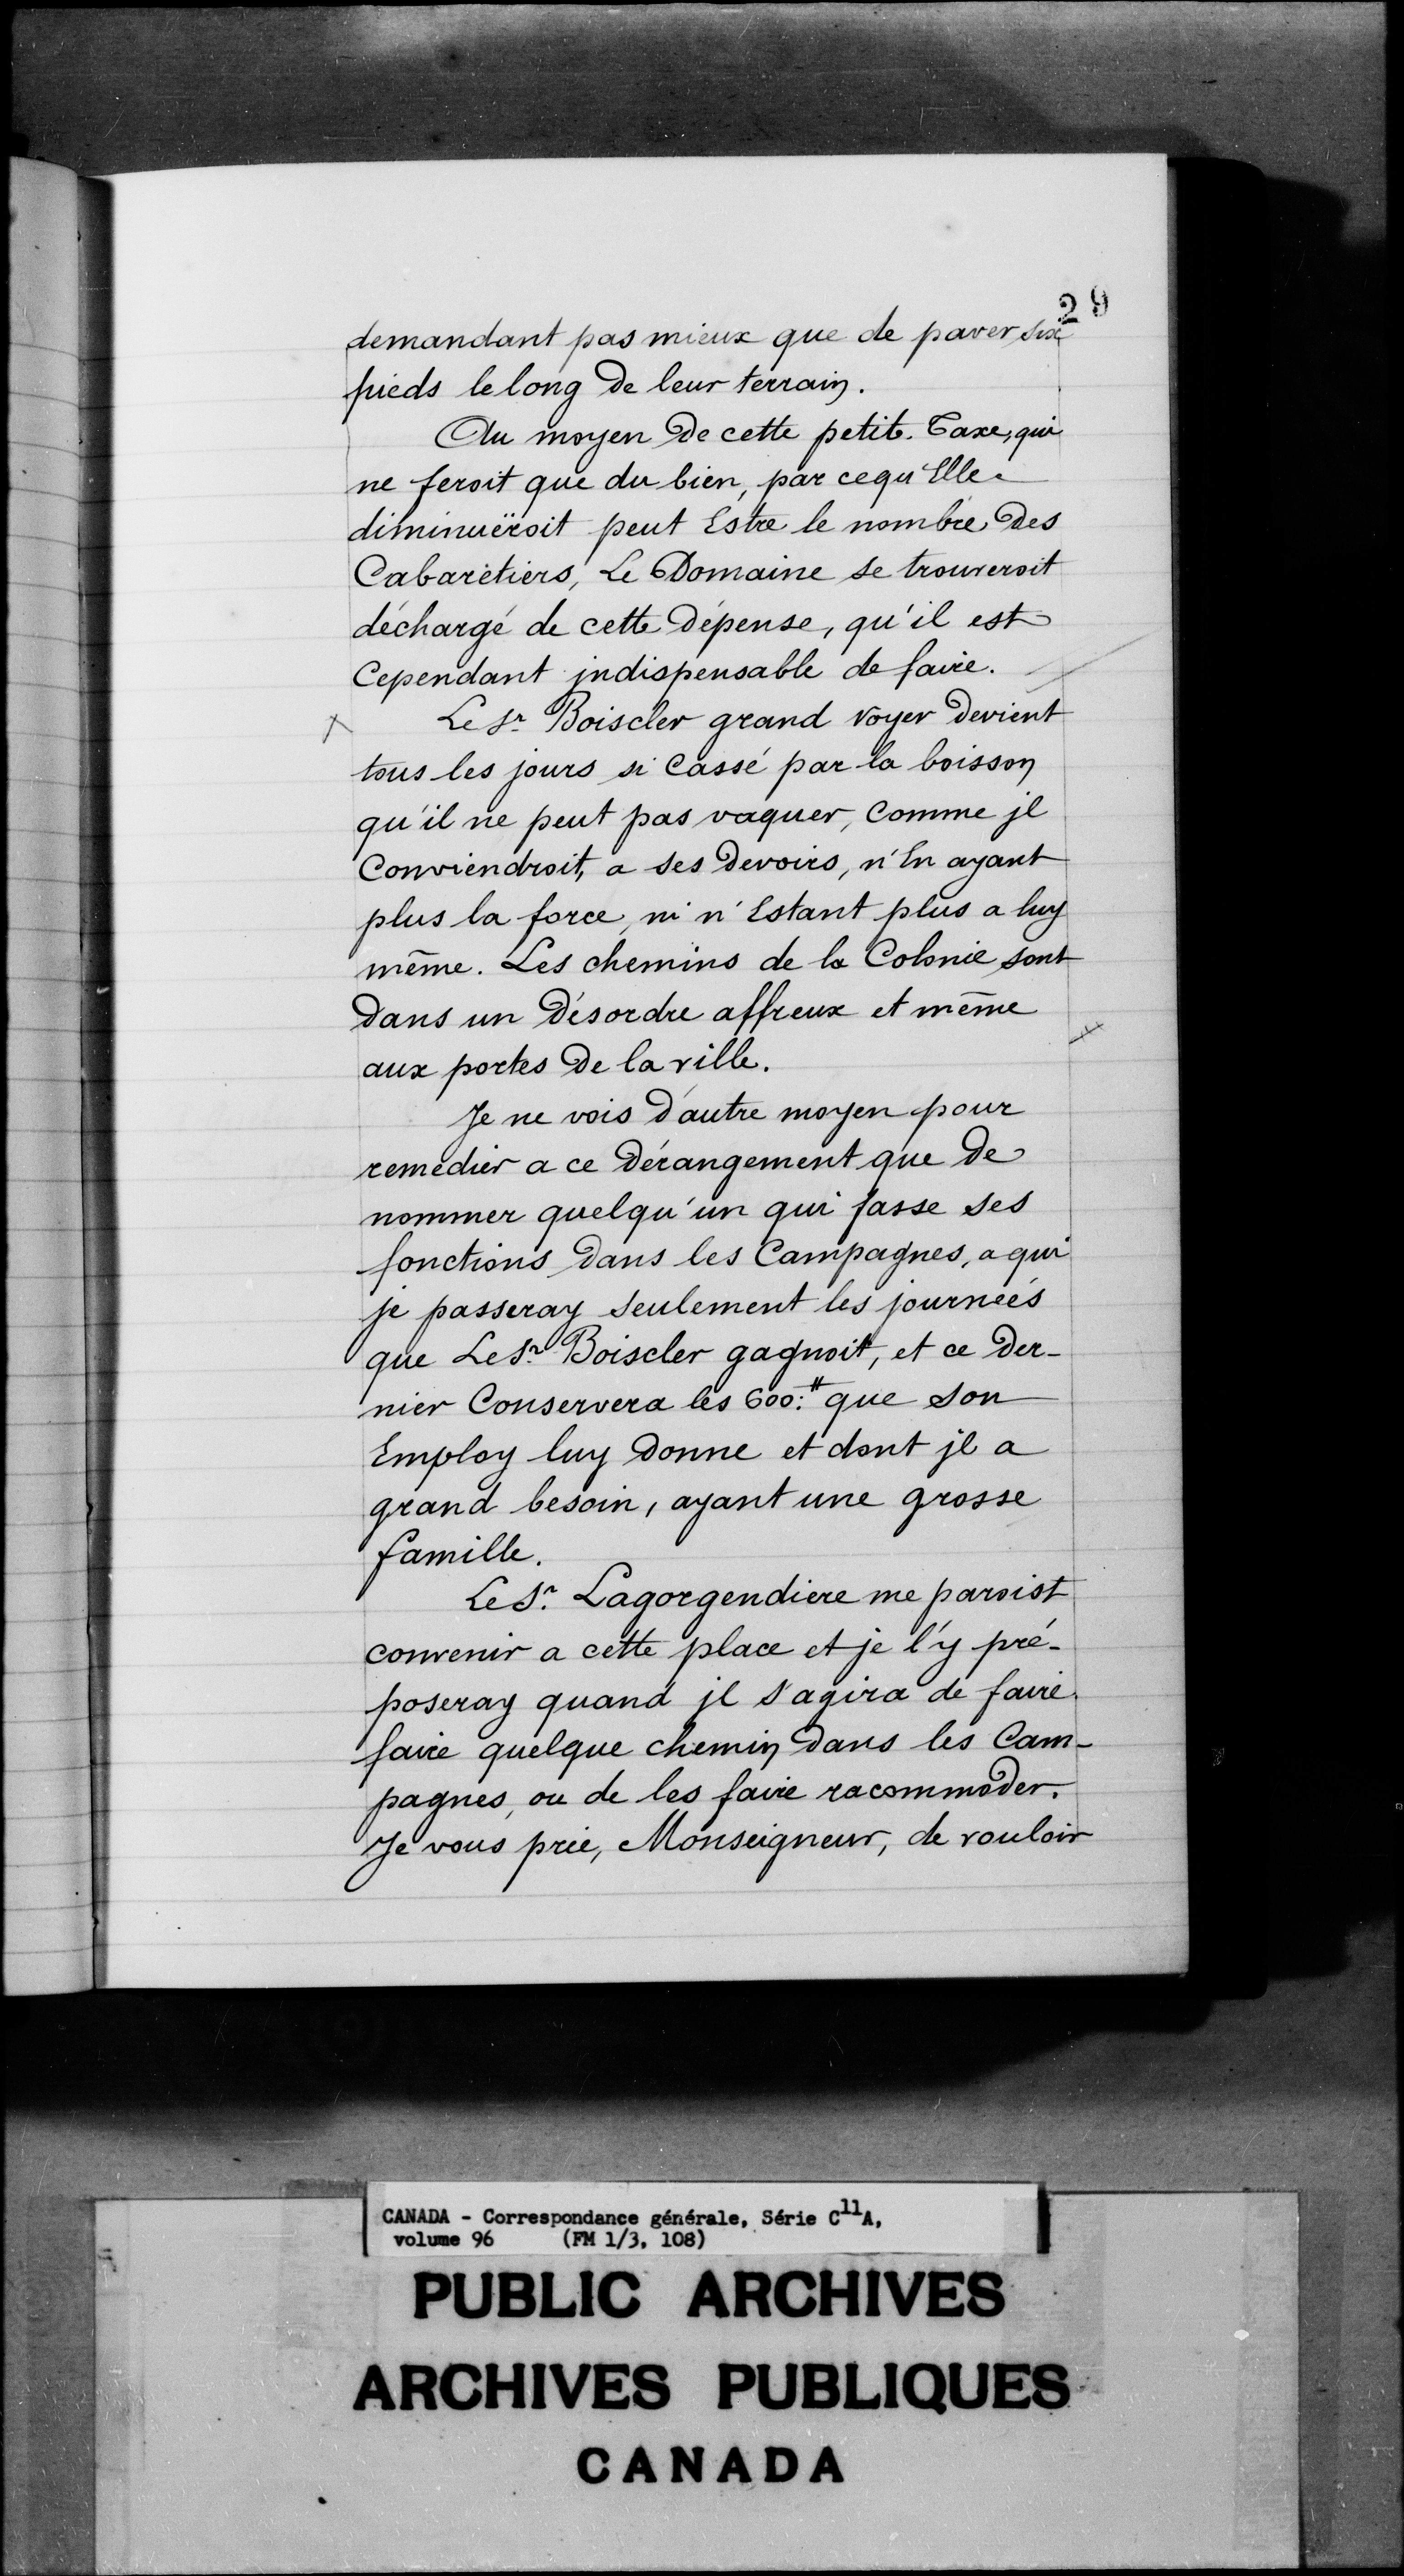 29
demandant pas mieux que de paver six
pieds le long De leur terrain.
Au moyen De cette petite Taxe, qui
ne feroit que du bien, par cequ'Elle
diminuëroit peut Estre le nombre Des
Cabarétiers, Le Domaine se trouveroit
déchargé de cette Dépense, qu'il est
Cependant jndispensable de faire.
X Le Sr. Boiscler grand voyer Devient
tous les jours si Cassé par la boisson
qu'il ne peut pas vaquer, Comme jl
Conviendroit, a ses Devoirs, n'En ayant
plus la force, ni n'Estant plus a luy
même. Les chemins de la Colonie sont
Dans un Désordre affreux et même
aux portes De la ville. X
Je ne vois D'autre moyen pour
remedier a ce Dérangement que De
nommer quelqu'un qui fasse ses
fonctions Dans les Campagnes, a qui
je passeray seulement les journées
que Le Sr. Boiscler gagnoit, et ce Der-
nier Conservera les 600:# que son
Employ luy Donne et dont jl a
grand besoin, ayant une grosse
famille.
Le Sr. Lagorgendiere me paroist
convenir a cette place et je l'y pré-
poseray quand jl s'agira de faire
faire quelque chemin Dans les Cam-
pagnes, ou de les faire racommoder.
Je vous prie, Monseigneur, de vouloir
CANADA - Correspondance générale, Série C11A,
volume 96 (FM 1/3, 108)
PUBLIC ARCHIVES
ARCHIVES PUBLIQUES
CANADA